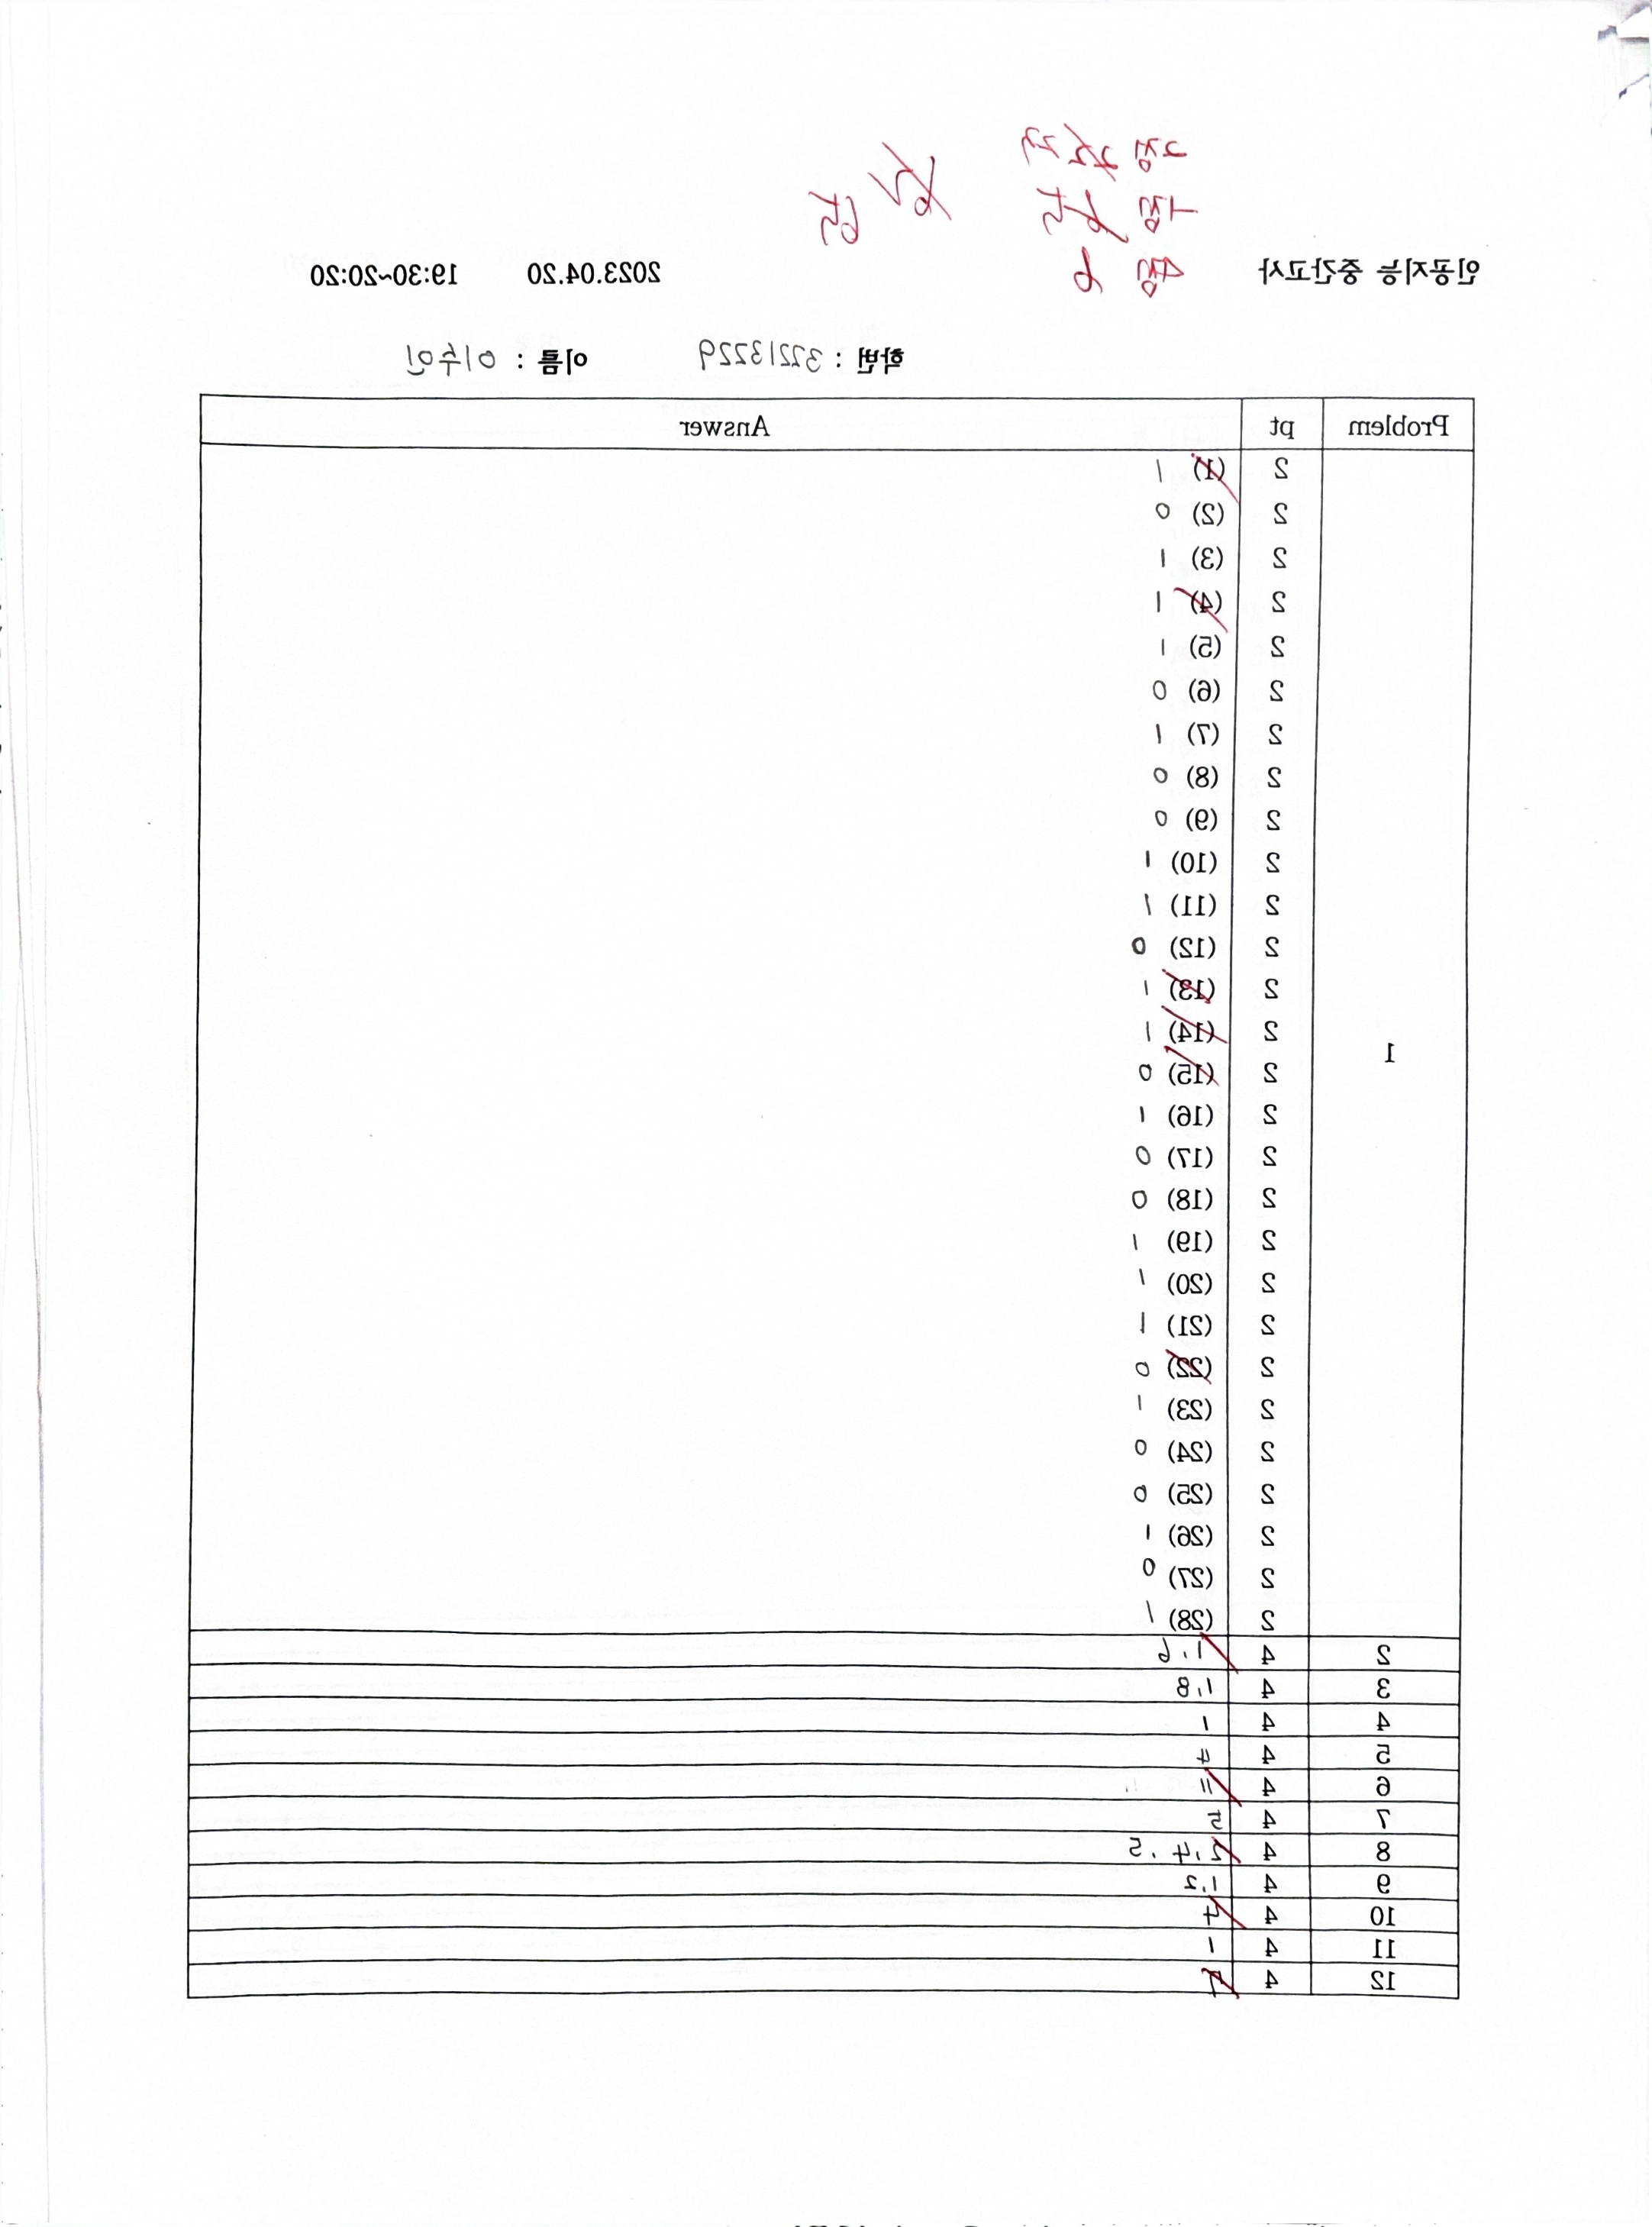 인공지능 중간고사 2023.04.20 19:30~20:20
학번 : 32213229 이름 : 이수인
Problem pt Answer
1
2 (1) 1
2 (2) 0
2 (3) 1
2 (4) 1
2 (5) 1
2 (6) 0
2 (7) 1
2 (8) 0
2 (9) 0
2 (10) 1
2 (11) 1
2 (12) 0
2 (13) 1
2 (14) 1
2 (15) 0
2 (16) 1
2 (17) 0
2 (18) 0
2 (19) 1
2 (20) 1
2 (21) 1
2 (22) 0
2 (23) 1
2 (24) 0
2 (25) 0
2 (26) 1
2 (27) 0
2 (28) 1
2 4 1.6
3 4 1.8
4 4 1
5 4 7
6 4 11
7 4 5
8 4 2.7.5
9 4 1.2
10 4 7
11 4 1
12 4